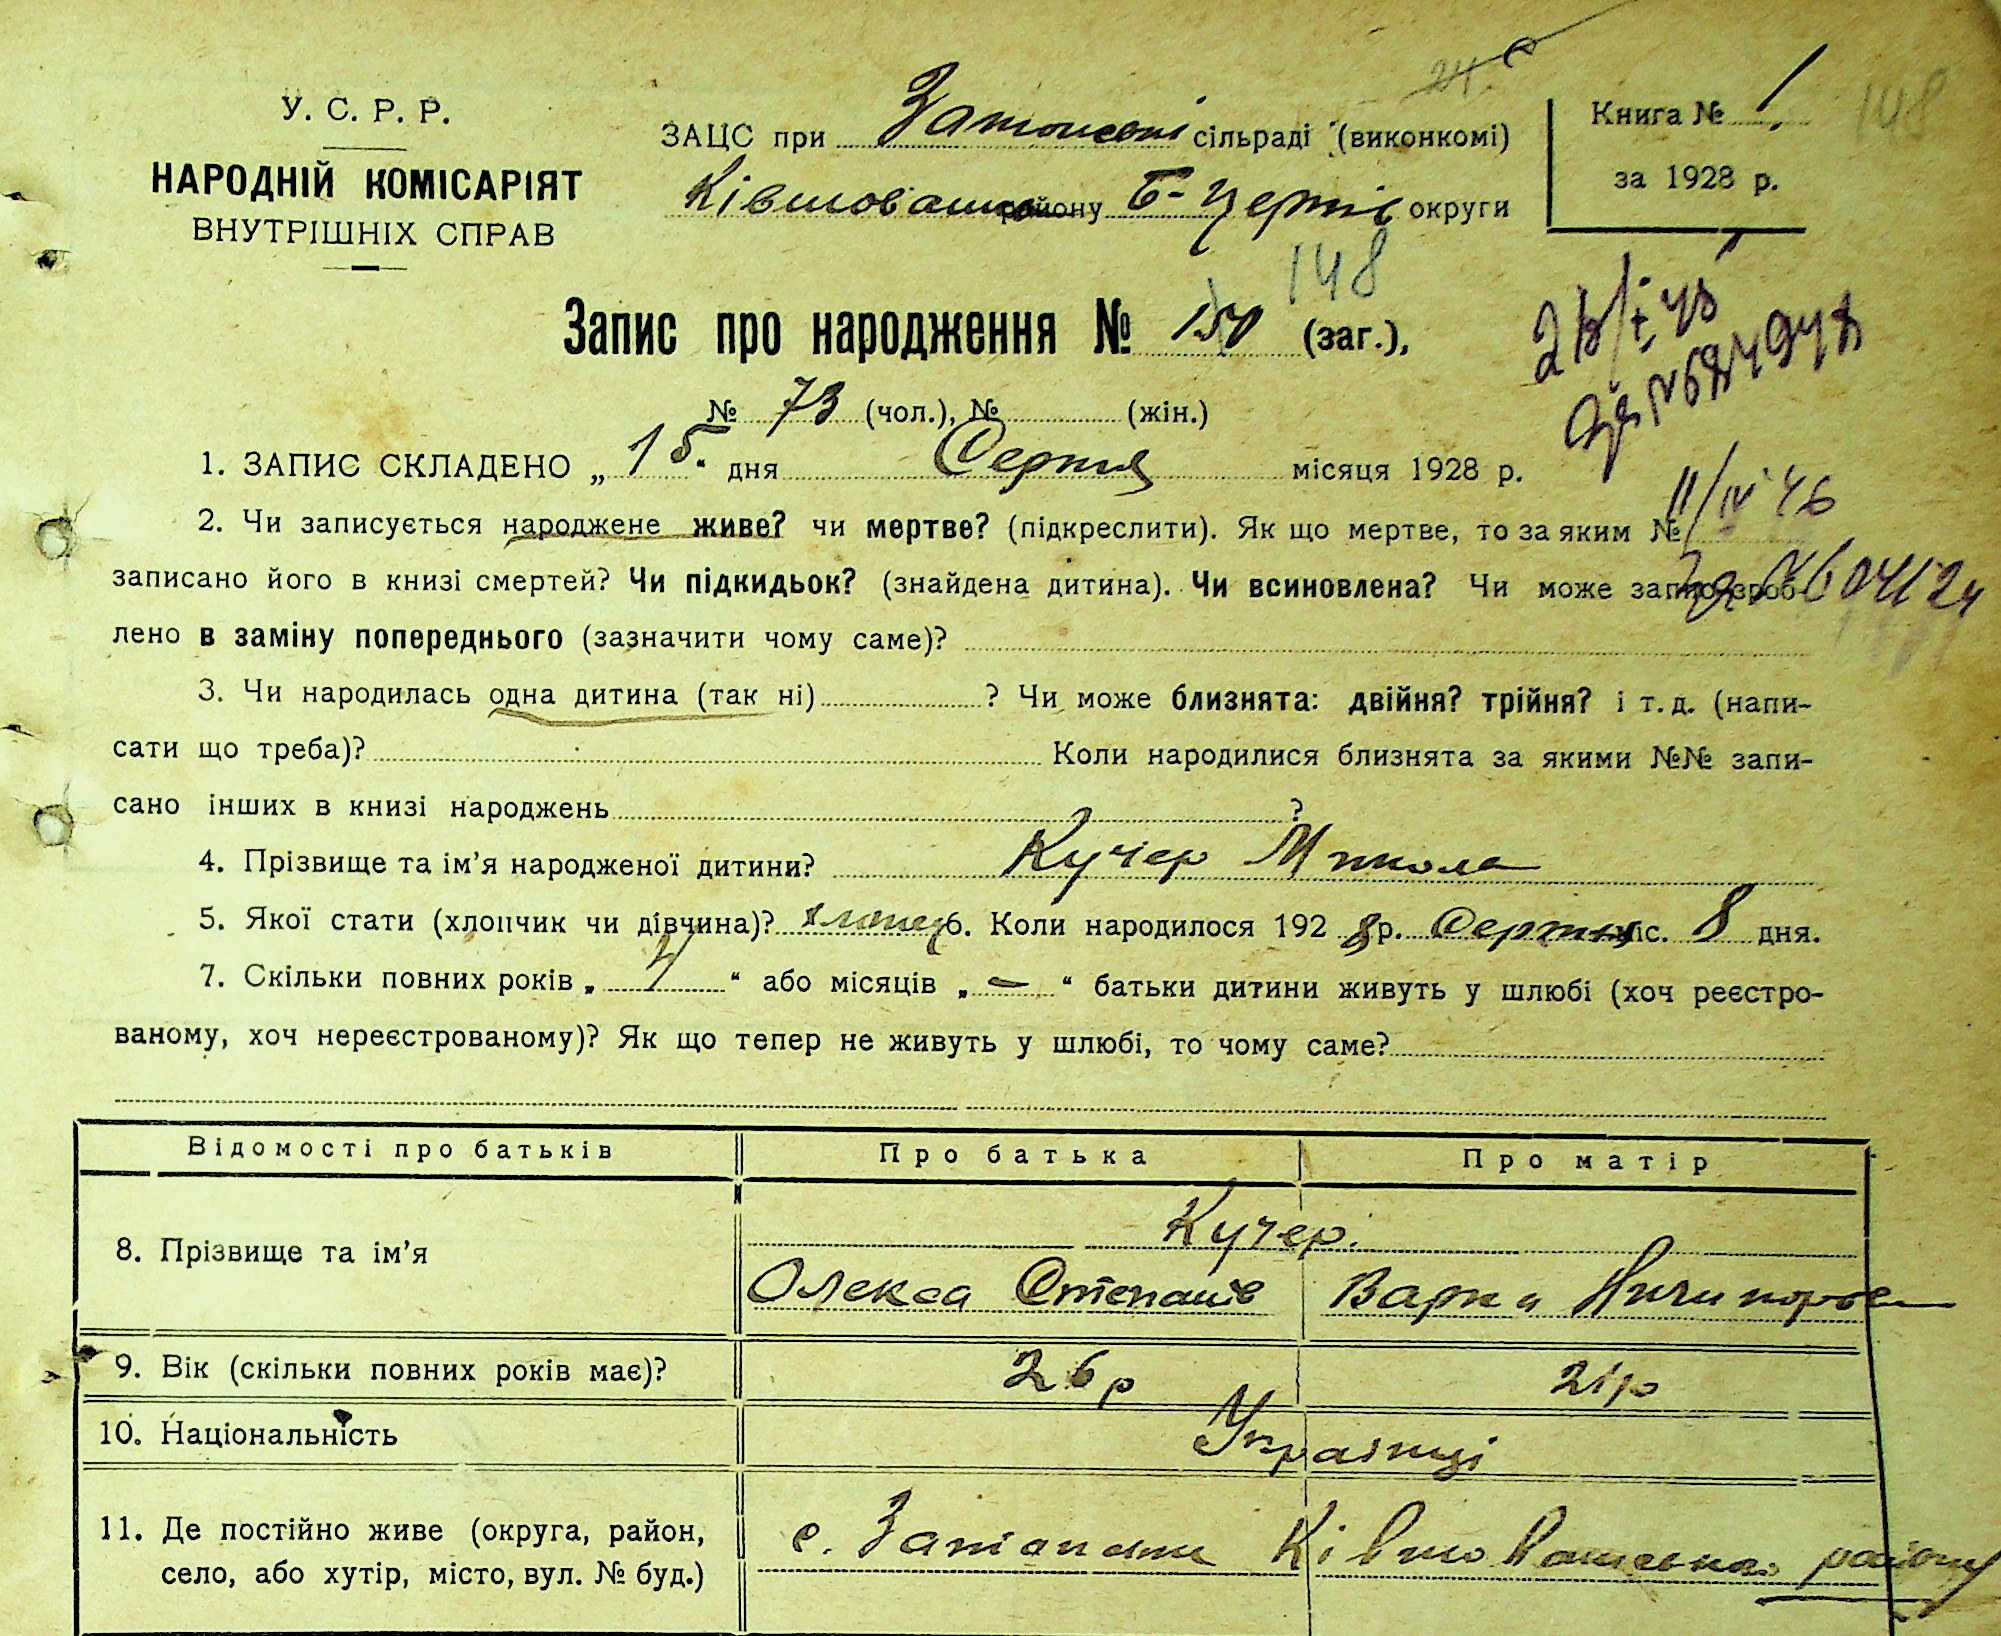 У. С. Р. Р.
НАРОДНІЙ КОМІСАРІЯТ
ВНУТРІШНІХ СПРАВ
ЗАЦС при сільраді (виконкомі)
району Б-Церків округи
Книга № 1
за 1928 р.
148
148
Запис про народження № 150 (заг.),
№ 73 (чол.), № (жін.)
1. ЗАПИС СКЛАДЕНО „ 15 “ дня Серпня місяця 1928 р.
2. Чи записується народжене живе? чи мертве? (підкреслити). Як що мертве, то за яким №
11/IV 46
записано його в книзі смертей? Чи підкидьок? (знайдена дитина). Чи всиновлена? Чи може запис зроб-
лено в заміну попереднього (зазначити чому саме)?
3. Чи народилась одна дитина (так ні) ? Чи може близнята: двійня? трійня? і т. д. (напи-
сати що треба)? Коли народилися близнята за якими №№ запи-
сано інших в книзі народжень ?
4. Прізвище та ім’я народженої дитини? Кучер Микола
5. Якої стати (хлопчик чи дівчина)? хлопец 6. Коли народилося 192 8 р. Серпня міс. 8 дня.
7. Скільки повних років „ 4 “ або місяців „ — “ батьки дитини живуть у шлюбі (хоч реєстро-
ваному, хоч нереєстрованому)? Як що тепер не живуть у шлюбі, то чому саме?
Відомості про батьків Про батька Про матір
8. Прізвище та ім’я Кучер.
Олекса Степанів Варка Ничипорова
9. Вік (скільки повних років має)? 26 р 21 р
10. Національність Українці
11. Де постійно живе (округа, район,
село, або хутір, місто, вул. № буд.)
с. району